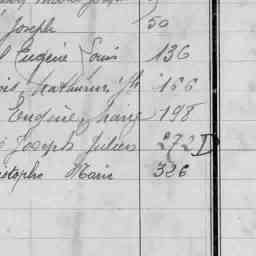 Joseph 50
Eugène Louis 136
Mathurin 166
Eugène, Marie 198
Joseph Julien 272 D
Marie 326